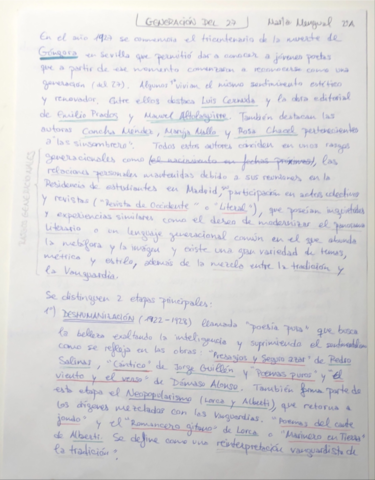 GENERACIÓN DEL 27
En el año 1927 se conmemora el tricentenario de la muerte de
Góngora en Sevilla que permitió dar a conocer a jóvenes poetas
que a partir de ese momento comenzaron a reconocerse como una
generación (del 27). Algunos vivían el mismo sentimiento estético
y renovador. Entre ellos destaca Luis Cernuda y la labor editorial
de Emilio Prados y Manuel Altolaguirre. También destacan las
autoras Concha Mendes, Maruja Mallo y Rosa Chacel pertenecientes
a "las sinsombrero". Todos estos autores coinciden en unos rasgos
generacionales como las
relaciones personales mantenidas debido a sus reuniones en la
Residencia de estudiantes en Madrid, participación en actos colectivos
y revistas ("Revista de Occidente" o "Literal"), que poseían inquietudes
y experiencias similares como el deseo de modernizar el panorama
literario o un lenguaje generacional común en el que abunda
la metáfora y la imagen y existe una gran variedad de temas,
métrica y estilo, además de la mezcla entre la tradición y
la Vanguardia.
Se distinguen 2 etapas principales:
1ª) DESHUMANIZACIÓN (1922-1928) llamada "poesía pura" que busca
la belleza exaltando la inteligencia y suprimiendo el sentimentalismo
como se refleja en las obras: "Presagios y Seguro azar" de Pedro
Salinas, "Cántico" de Jorge Guillén y "Poemas puros" y "El
viento y el verso" de Dámaso Alonso. También forma parte de
esta etapa el Neopopularismo (Lorca y Alberti), que retorna a
los orígenes mezclados con las vanguardias. "Poemas del cante
jondo" y el "Romancero gitano" de Lorca o "Marinero en Tierra"
de Alberti. Se define como una reinterpretación vanguardista de
la tradición".